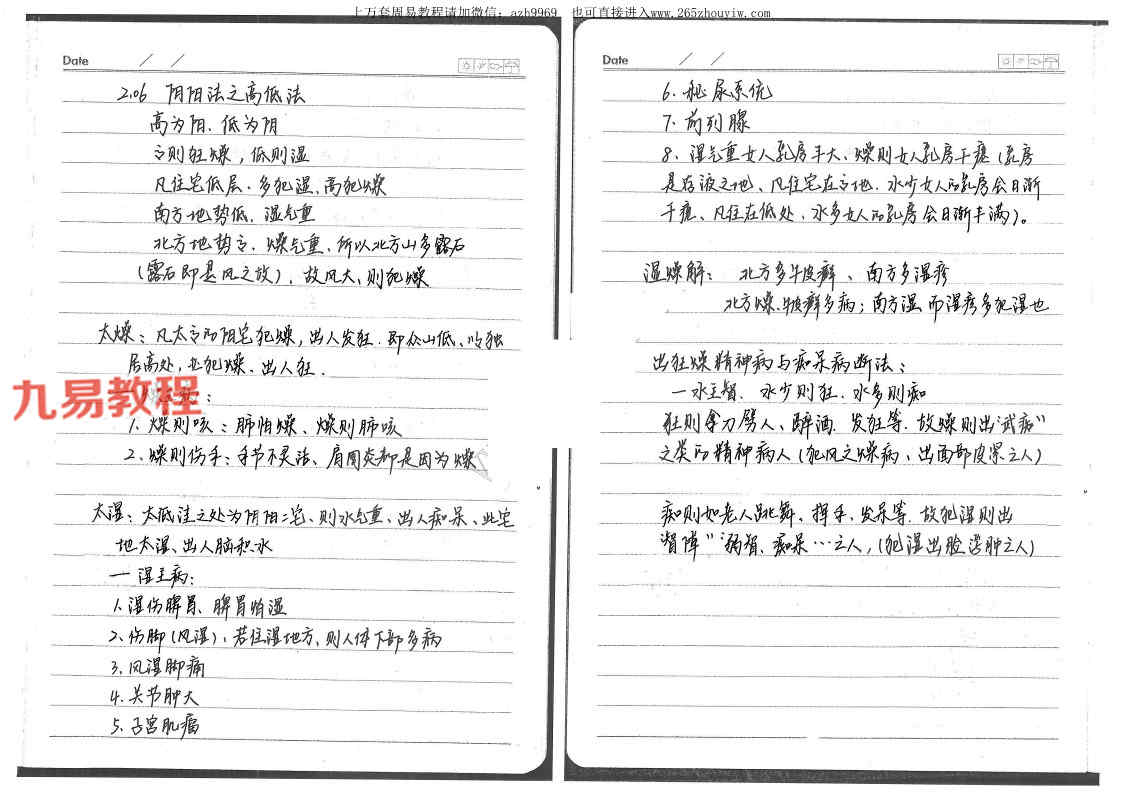 上万套周易教程请加微信：azh9969 也可直接进入www.265zhouyiw.com
Date / /
2.06 阴阳法之高低法
高为阳．低为阴
高则狂燥，低则湿
凡住宅低层．多犯湿、高犯燥
南方地势低．湿气重
北方地势高．燥气重、所以北方山多露石
(露石即是风之故)，故风大、则犯燥
太燥：凡太高的阴宅犯燥，出人发狂．即众山低、
居高处，也犯燥、出人狂．
九易教程
1．燥则咳：肺怕燥、燥则肺咳
2．燥则伤手：手节不灵活、肩周炎都是因为燥
太湿：太低洼之处为阴阳二宅、则水气重、出人痴呆、此宅
地太湿、出人脑积水
一 湿主病：
1．湿伤脾胃、脾胃怕湿
2、伤脚(风湿)、若住湿地方、则人体下部多病
3．风湿脚痛
4．关节肿大
5．子宫肌瘤
Date / /
6．秘尿系统
7．前列腺
8．湿气重女人乳房丰大、燥则女人乳房干瘪(乳房
是存液之地、凡住宅在高地．水少女人的乳房会日渐
干瘪、凡住在低处、水多女人的乳房会日渐丰满)。
湿燥解： 北方多牛皮癣、南方多湿疹
北方燥、牛皮癣多病；南方湿而湿疹多犯湿也
出狂燥精神病与痴呆病断法：
一水主智．水少则狂．水多则痴
狂则拿刀劈人、醉酒．发狂等．故燥则出“武痴”
之类的精神病人(犯风之燥病、出面部皮紧之人)
痴则如老人跳舞、挥手、发呆等．故犯湿则出
“智障”“弱智、痴呆…之人，(犯湿出脸浮肿之人)